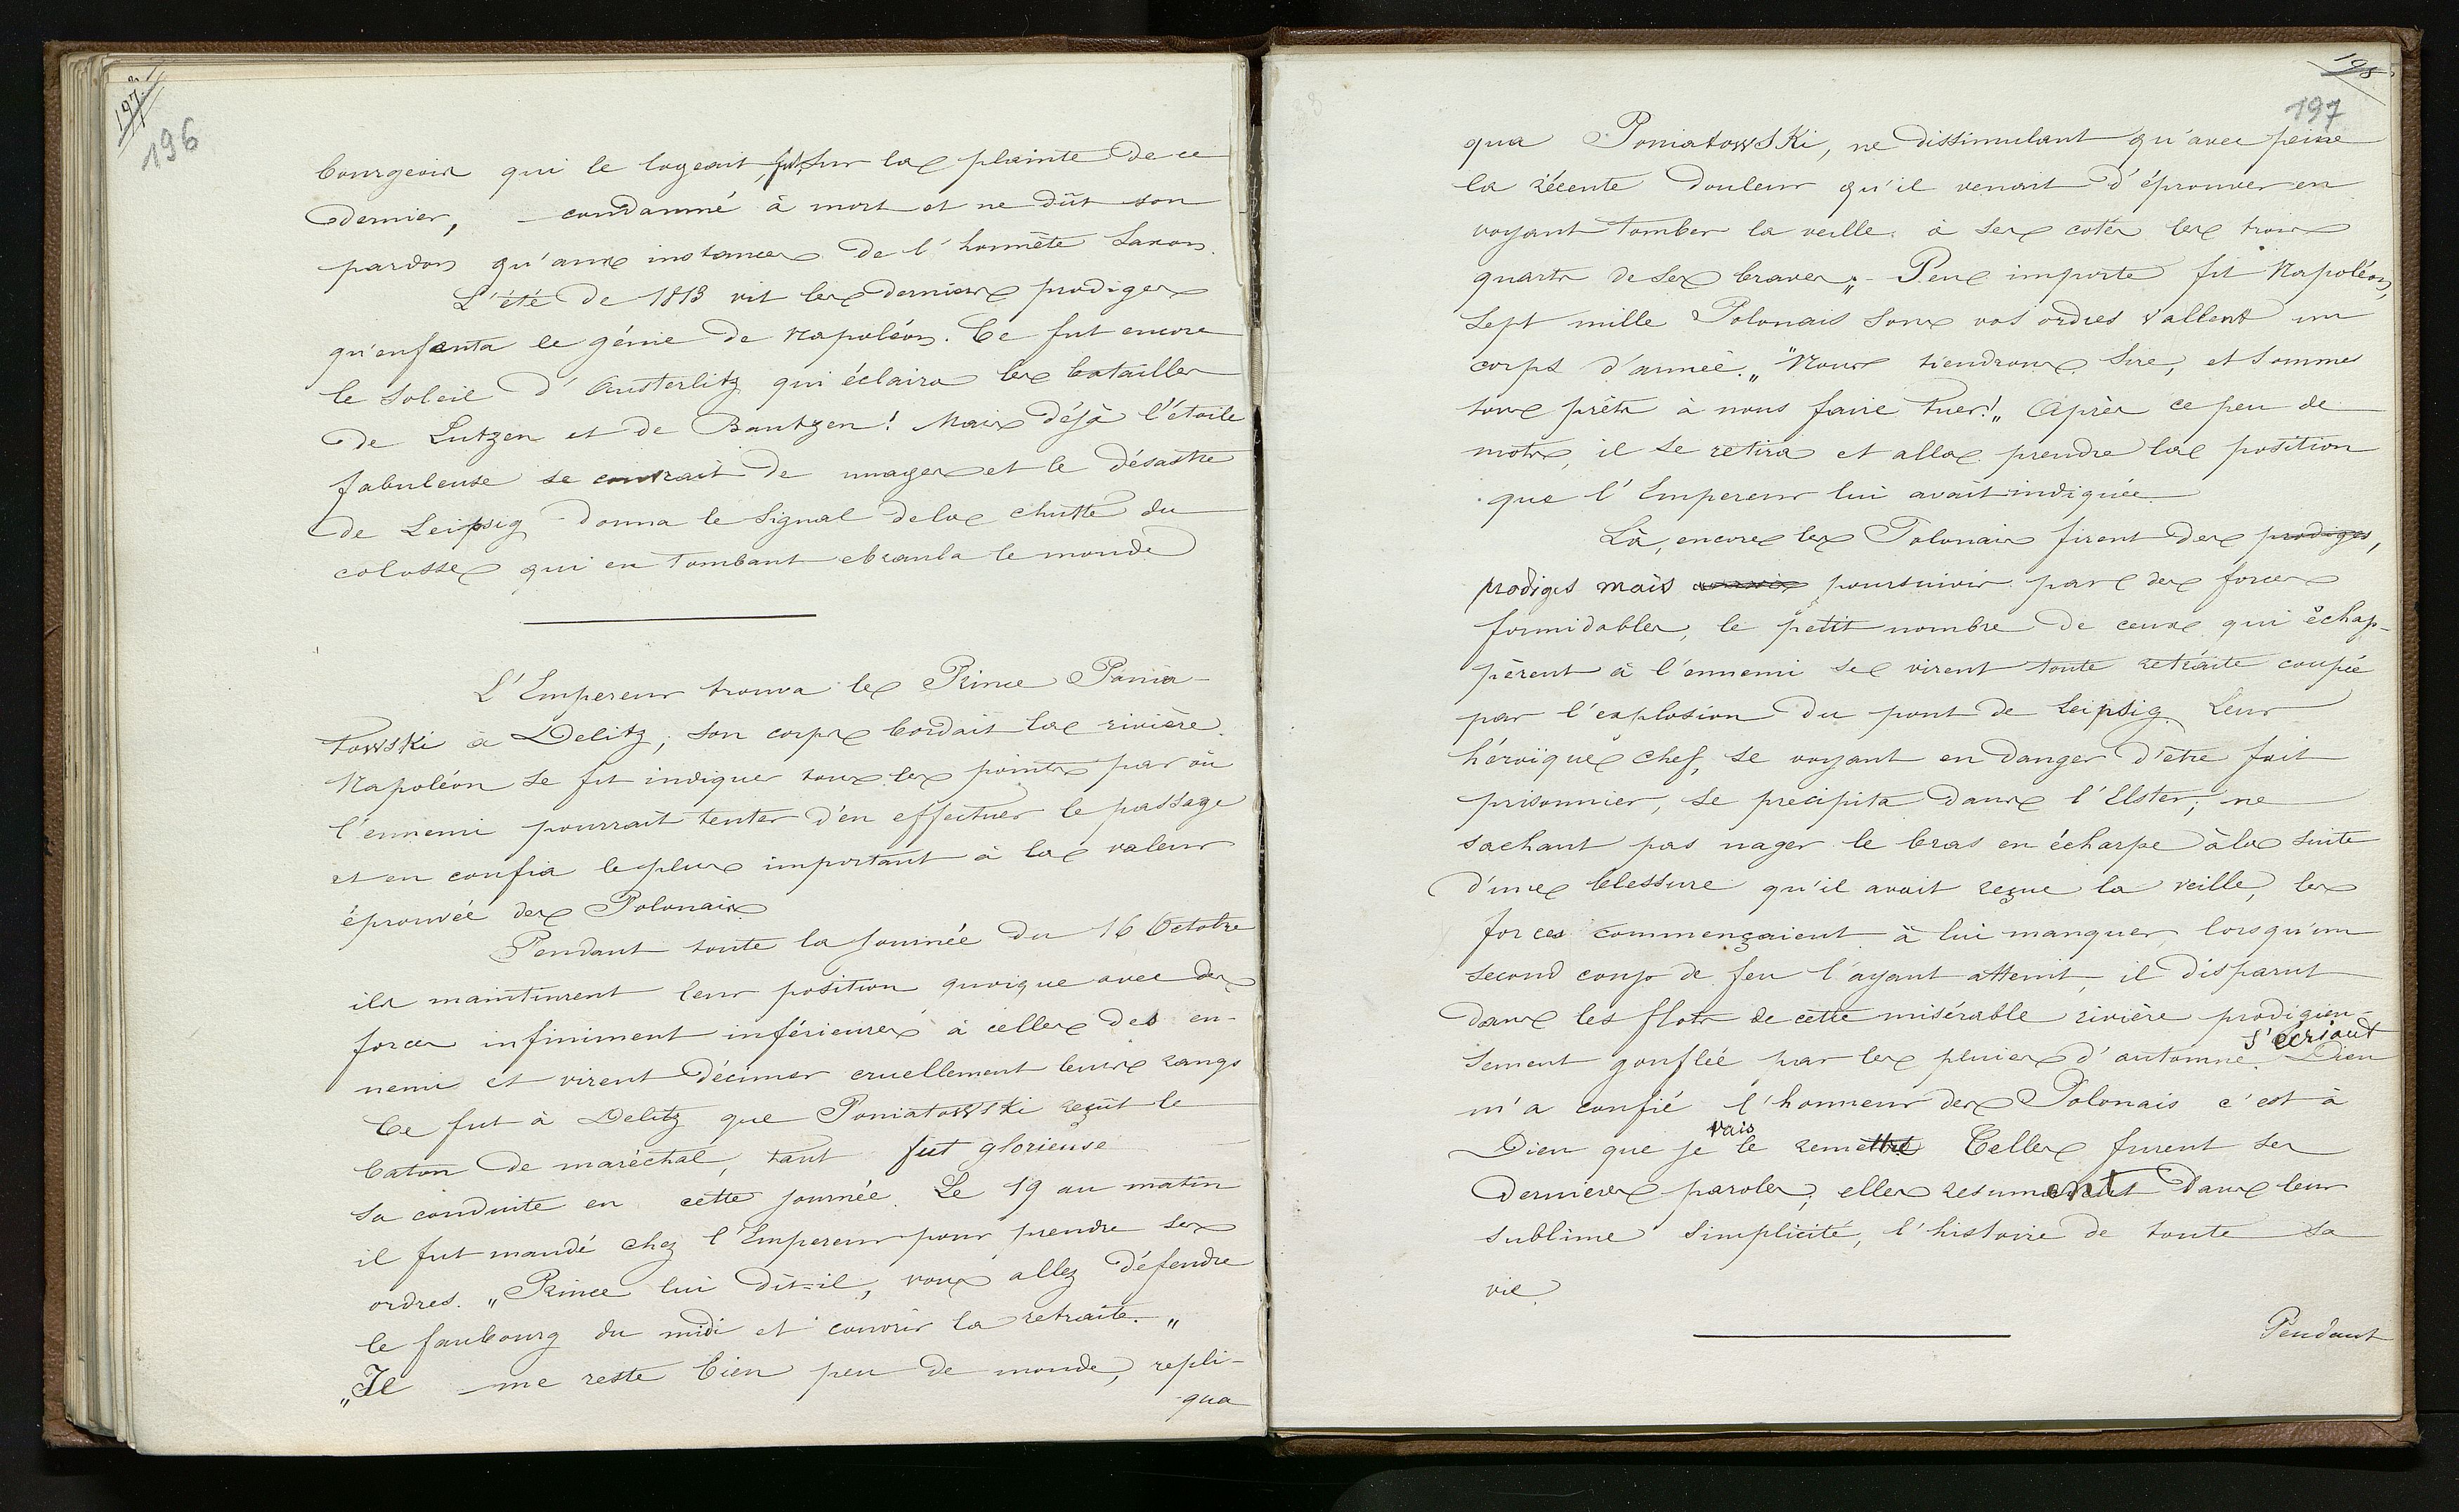 197
196
bourgeois qui le logeait, fut, sur la plainte de ce
dernier, condamné à mort et ne dût son
pardon qu'aux instances de l'honnête Saxon.
L'été de 1813 vit les derniers prodiges
qu'enfanta le génie de Napoléon. Ce fut encore
le soleil d'Austerlitz qui éclaira les batailles
de Lutzen et de Bautzen! Mais déjà l'étoile
fabuleuse se couvrait de nuages et le désastre
de Leipsig donna le signal de la chutte du
colosse qui en tombant ebranla le monde
L'Empereur trouva le Prince Ponia-
towski à Delitz, son corps bordait la rivière.
Napoléon se fit indiquer tous les points par où
l'ennemi pourrait tenter d'en effectuer le passage
et en confia le plus important à la valeur
éprouvée des Polonais
Pendant toute la journée du 16 Octobre
ils maintinrent leur position quoique avec des
forces infiniment inférieures à celles des en-
nemi et virent décimer cruellement leurs rangs
Ce fut à Delitz que Poniatowski reçût le
baton de maréchal, tant fut glorieuse
sa conduite en cette journée. Le 19 au matin
il fut mandé chez l'Empereur pour prendre ses
ordres. „Prince lui dit-il, vous allez défendre
le faubourg du midi et couvrir la retraite.„
„Il me reste bien peu de monde, repli-
qua
198
197
qua Poniatowski, ne dissimulant qu'avec peine
la récente douleur qu'il venait d'éprouver en
voyant tomber la veille à ses cotés les trois
quarts de ses braves„ - Peu importe fit Napoléon,
Sept mille Polonais sous vos ordres vallent un
corps d'armée. „Nous tiendrons Sire, et sommes
tous prêts à nous faire tuer!„ Après ce peu de
mots, il se retira et alla prendre la position
que l'Empereur lui avait indiquée
Là, encore les Polonais firent des prodiges,
prodiges mais poursuivis par des forces
formidables, le petit nombre de ceux qui échap-
pèrent à l'ennemi se virent toute retraite coupée
par l'explosion du pont de Leipsig. Leur
héroïque chef, se voyant en danger d'être fait
prisonnier, se precipita dans l'Elster; ne
sachant pas nager le bras en écharpe à la suite
d'une blessure qu'il avait reçue la veille, les
forces commençaient à lui manquer lorsqu'un
second coup de feu l'ayant atteint, il disparut
dans les flots de cette misérable rivière prodigieu-
s'écriant
sement gonflée par les pluies d'automne. Dieu
m'a confié l'honneur des Polonais c'est à
vais
Dieu que je le remettre Celles furent ses
dernieres paroles; elles resument dans leur
sublime simplicité, l'histoire de toute sa
vie.
Pendant